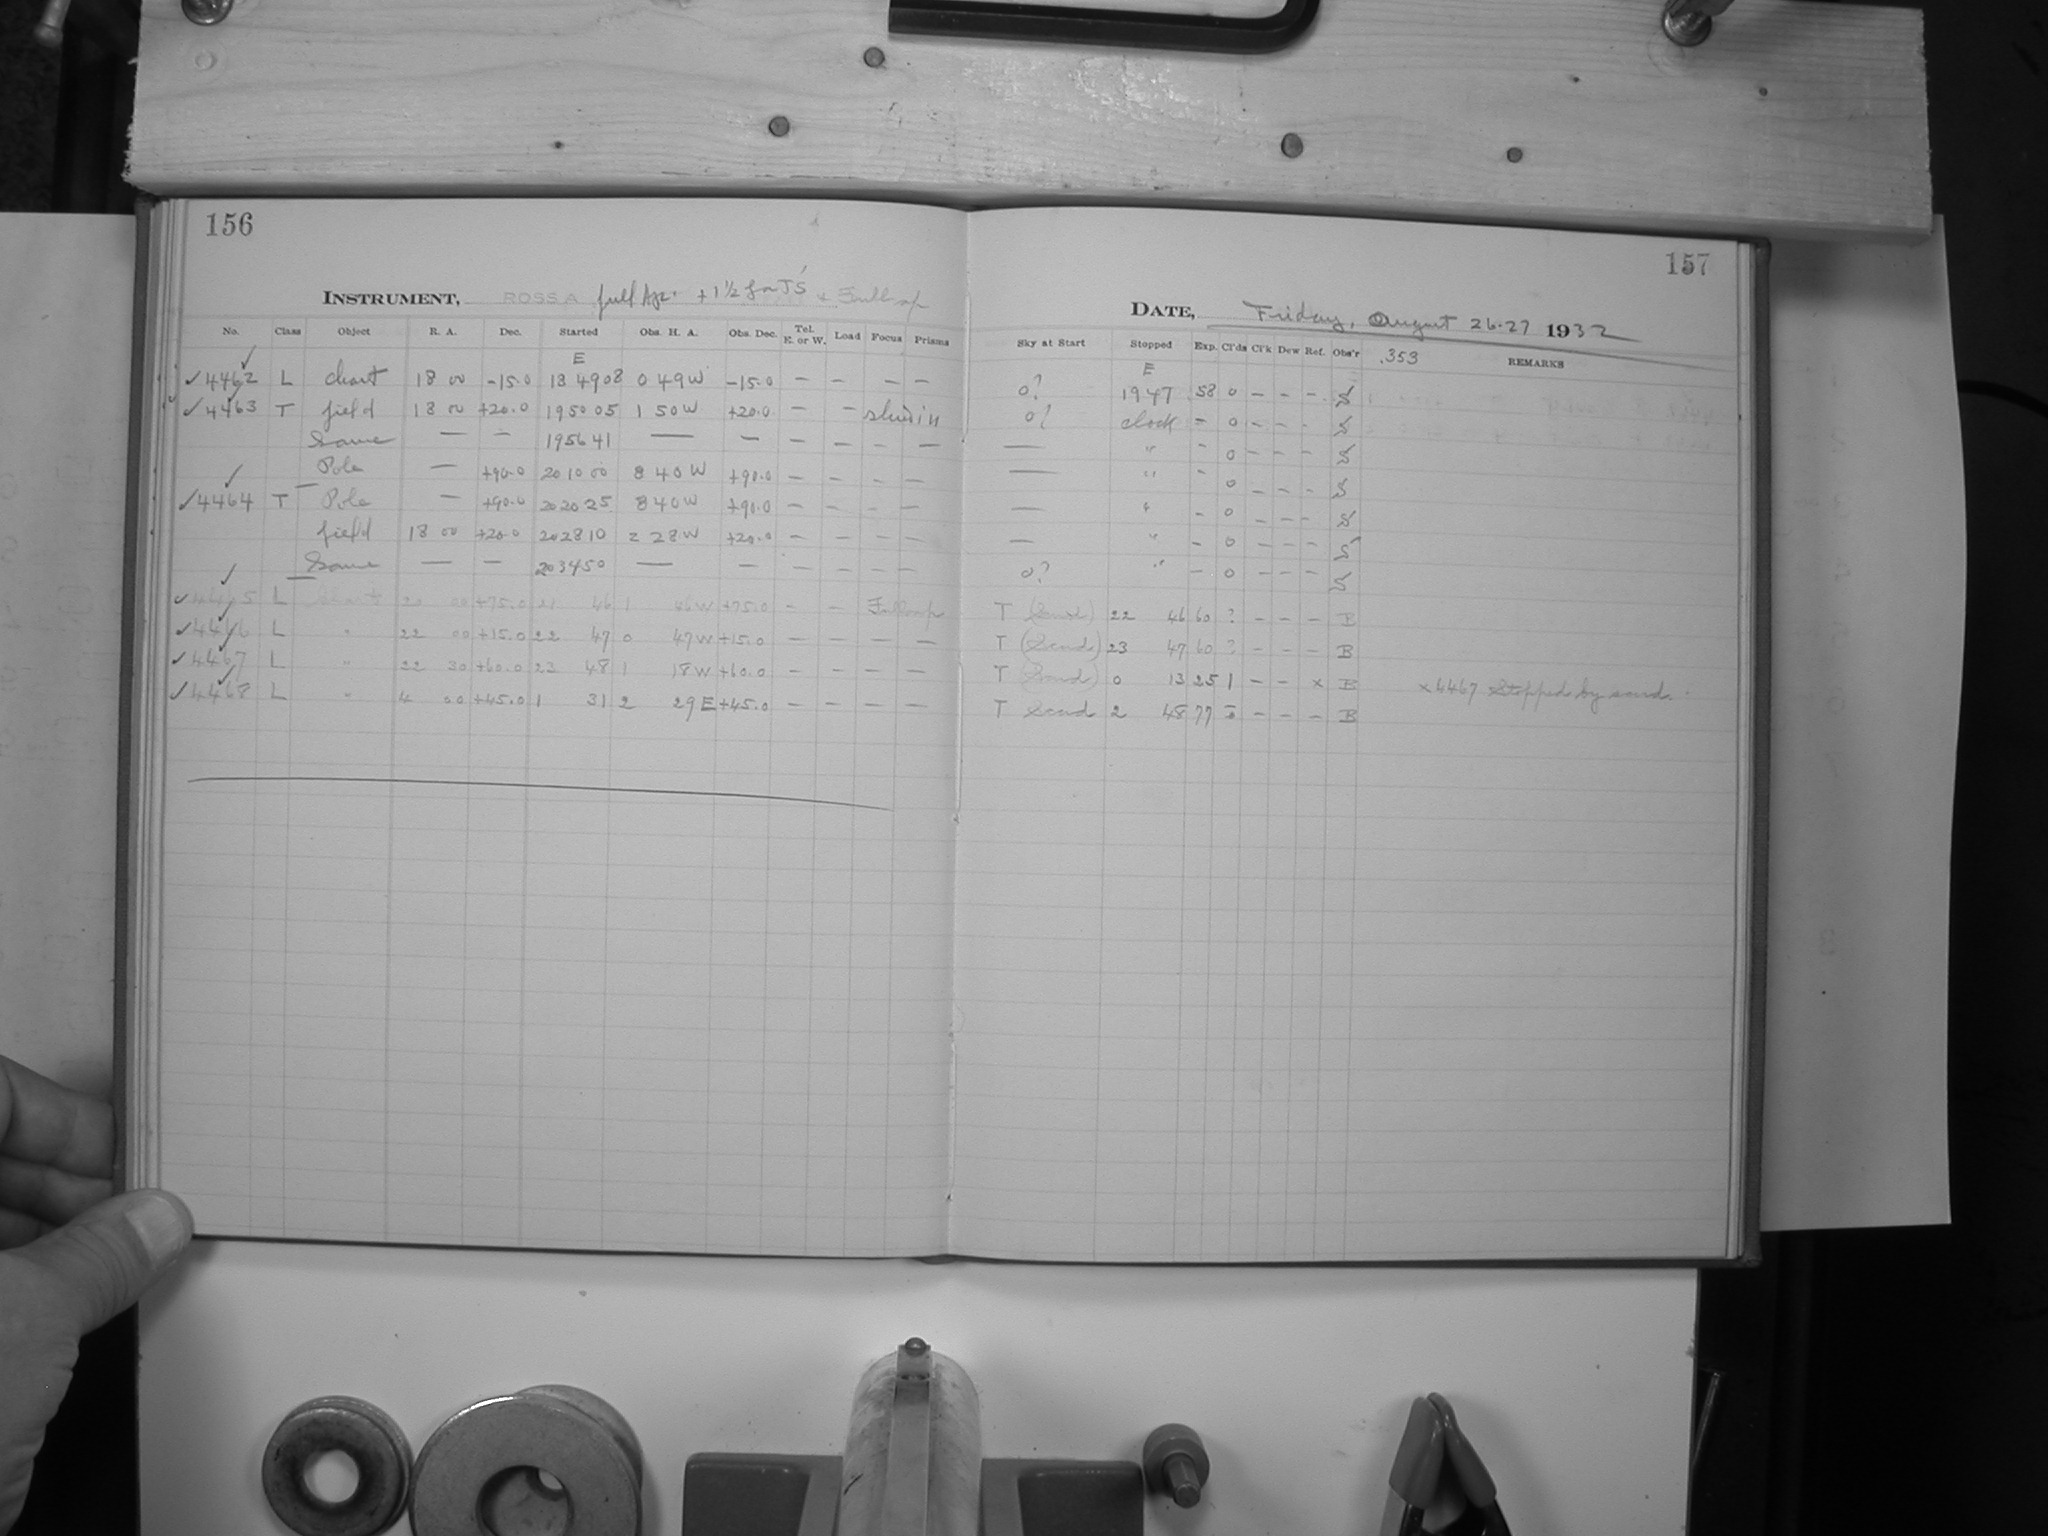 156
INSTRUMENT, ROSS A full Ap. + 1½ for T'S + Full ap
No. Class Object R. A. Dec. Started Obs. H. A. Obs. Dec. Tel. E. or W. Load Focus Prisms
E
✓4462 L chart 18 00 -15.0 18 49 08 0 49 W -15.0 — — — —
✓4463 T field 18 00 +20.0 19 50 05 1 50 W +20.0 — —
Same — — 19 56 41 — — — — — —
Pole — +90.0 20 10 00 8 40 W +90.0 — — — —
✓4464 T Pole — +90.0 20 20 25 8 40 W +90.0 — — — —
field 18 00 +20.0 20 28 10 2 28 W +20.0 — — — —
Same — — 20 34 50 — — — — — —
✓4465 L chart 00 +75.0 21 46 1 46 W +75.0 - - Full ap
✓4466 L " 22 00 +15.0 22 47 0 47 W +15.0 — — — —
✓4467 L " 22 30 +60.0 23 48 1 18 W +60.0 — — — —
✓4468 L " 4 00 +45.0 1 31 2 29 E +45.0 — — — —
157
DATE, Friday, August 26-27 1932
Sky at Start Stopped Exp. Cl'ds Cl'k Dew Ref. Obs'r .353 REMARKS
E
0? 19 47 58 0 - - - S
0? clock - 0 - - - S
— " - 0 - - - S
— " - 0 - - - S
— " - 0 - - - S
— " - 0 - - - S
0? " - 0 - - - S
T (Scud) 22 46 60 ? - - - B
T (Scud) 23 47 60 ? - - - B
T (Scud) 0 13 25 1 - - x B x4467 Stopped by scud.
T Scud 2 48 77 - - - B